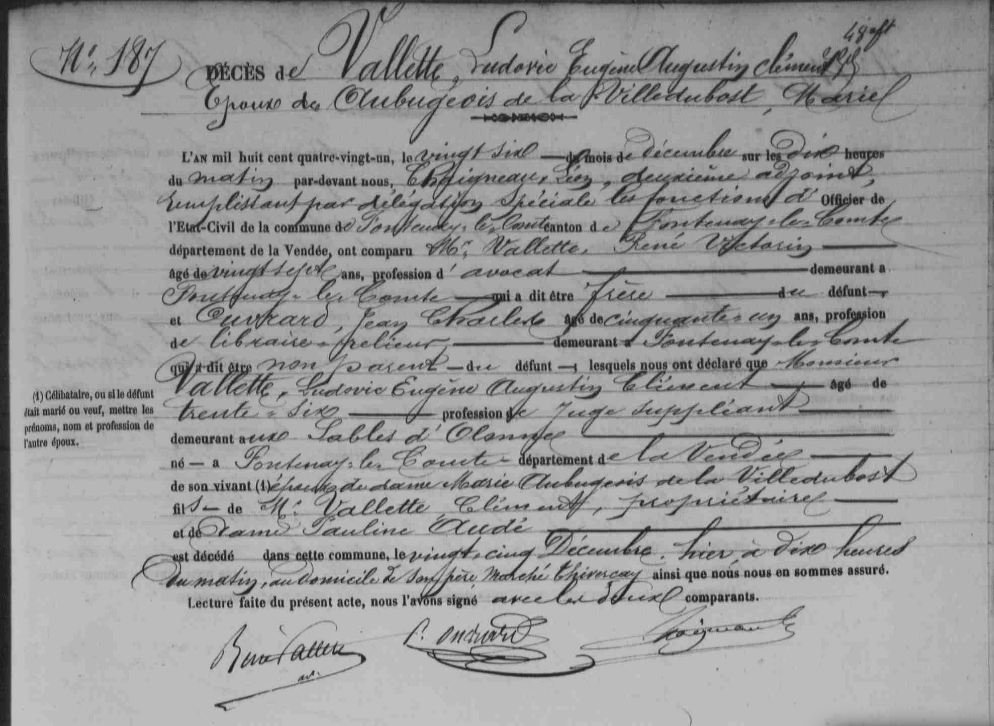 No 187
DÉCÈS de Vallette, Ludovic Eugène Augustin Clément
Epoux de Aubugeois de la Villedubost, Marie
L'AN mil huit cent quatre-vingt-un, le vingt six du mois de décembre sur les dix heures
du matin par-devant nous, Chaigneau, Léon, deuxième adjoint,
remplissant par délégation spéciale les fonctions d' Officier de
l'Etat-Civil de la commune de Fontenay-le-Comte canton de Fontenay-le-Comte
département de la Vendée, ont comparu Mr. Vallette, René Victorin
âgé de vingt sept ans, profession d' avocat demeurant a
Fontenay-le-Comte qui a dit être frère du défunt
et Ouvrard, Jean Charles âgé de cinquante-un ans, profession
de libraire-relieur, demeurant à Fontenay-le-Comte
qui a dit être non parent du défunt ; lesquels nous ont déclaré que Monsieur
Vallette, Ludovic Eugène Augustin Clément âgé de
trente-six profession de Juge suppléant
(1) Célibataire, ou si le défunt
était marié ou veuf, mettre les
prénoms, nom et profession de
l'autre époux.
demeurant aux Sables d'Olonne
né a Fontenay-le-Comte département de la Vendée
de son vivant (1) époux de dame Marie Aubugeois de la Villedubost
fils de Mr. Vallette Clément, propriétaire
et de dame Pauline Audé
est décédé dans cette commune, le vingt-cinq Décembre, hier à dix heures
du matin, au domicile de son père Marché ainsi que nous nous en sommes assuré.
Lecture faite du présent acte, nous l'avons signé avec les deux comparants.
René Vallette
Ouvrard
Chaigneau